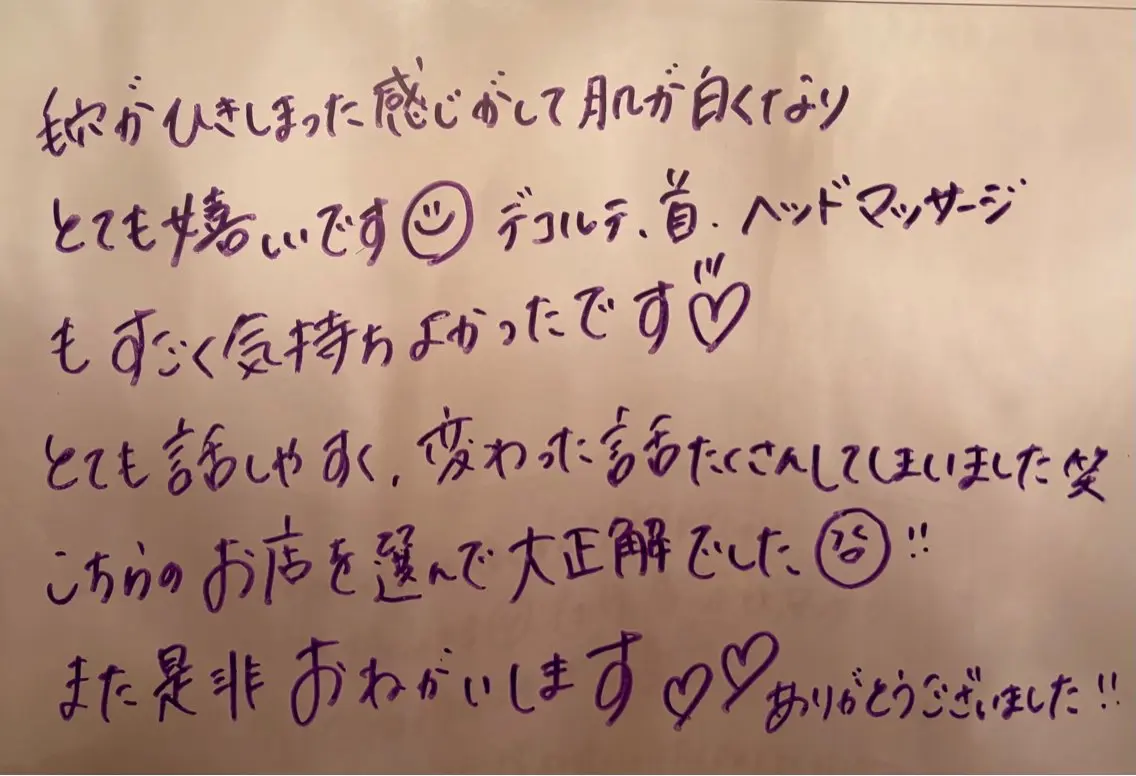 毛穴がひきしまった感じがして肌が白くなり
とても嬉しいです☺デコルテ、首、ヘッドマッサージ
もすごく気持ちよかったです♡
とても話しやすく、変わった話たくさんしてしまいました笑
こちらのお店を選んで大正解でした!!
また是非おねがいします♡♡ありがとうございました!!